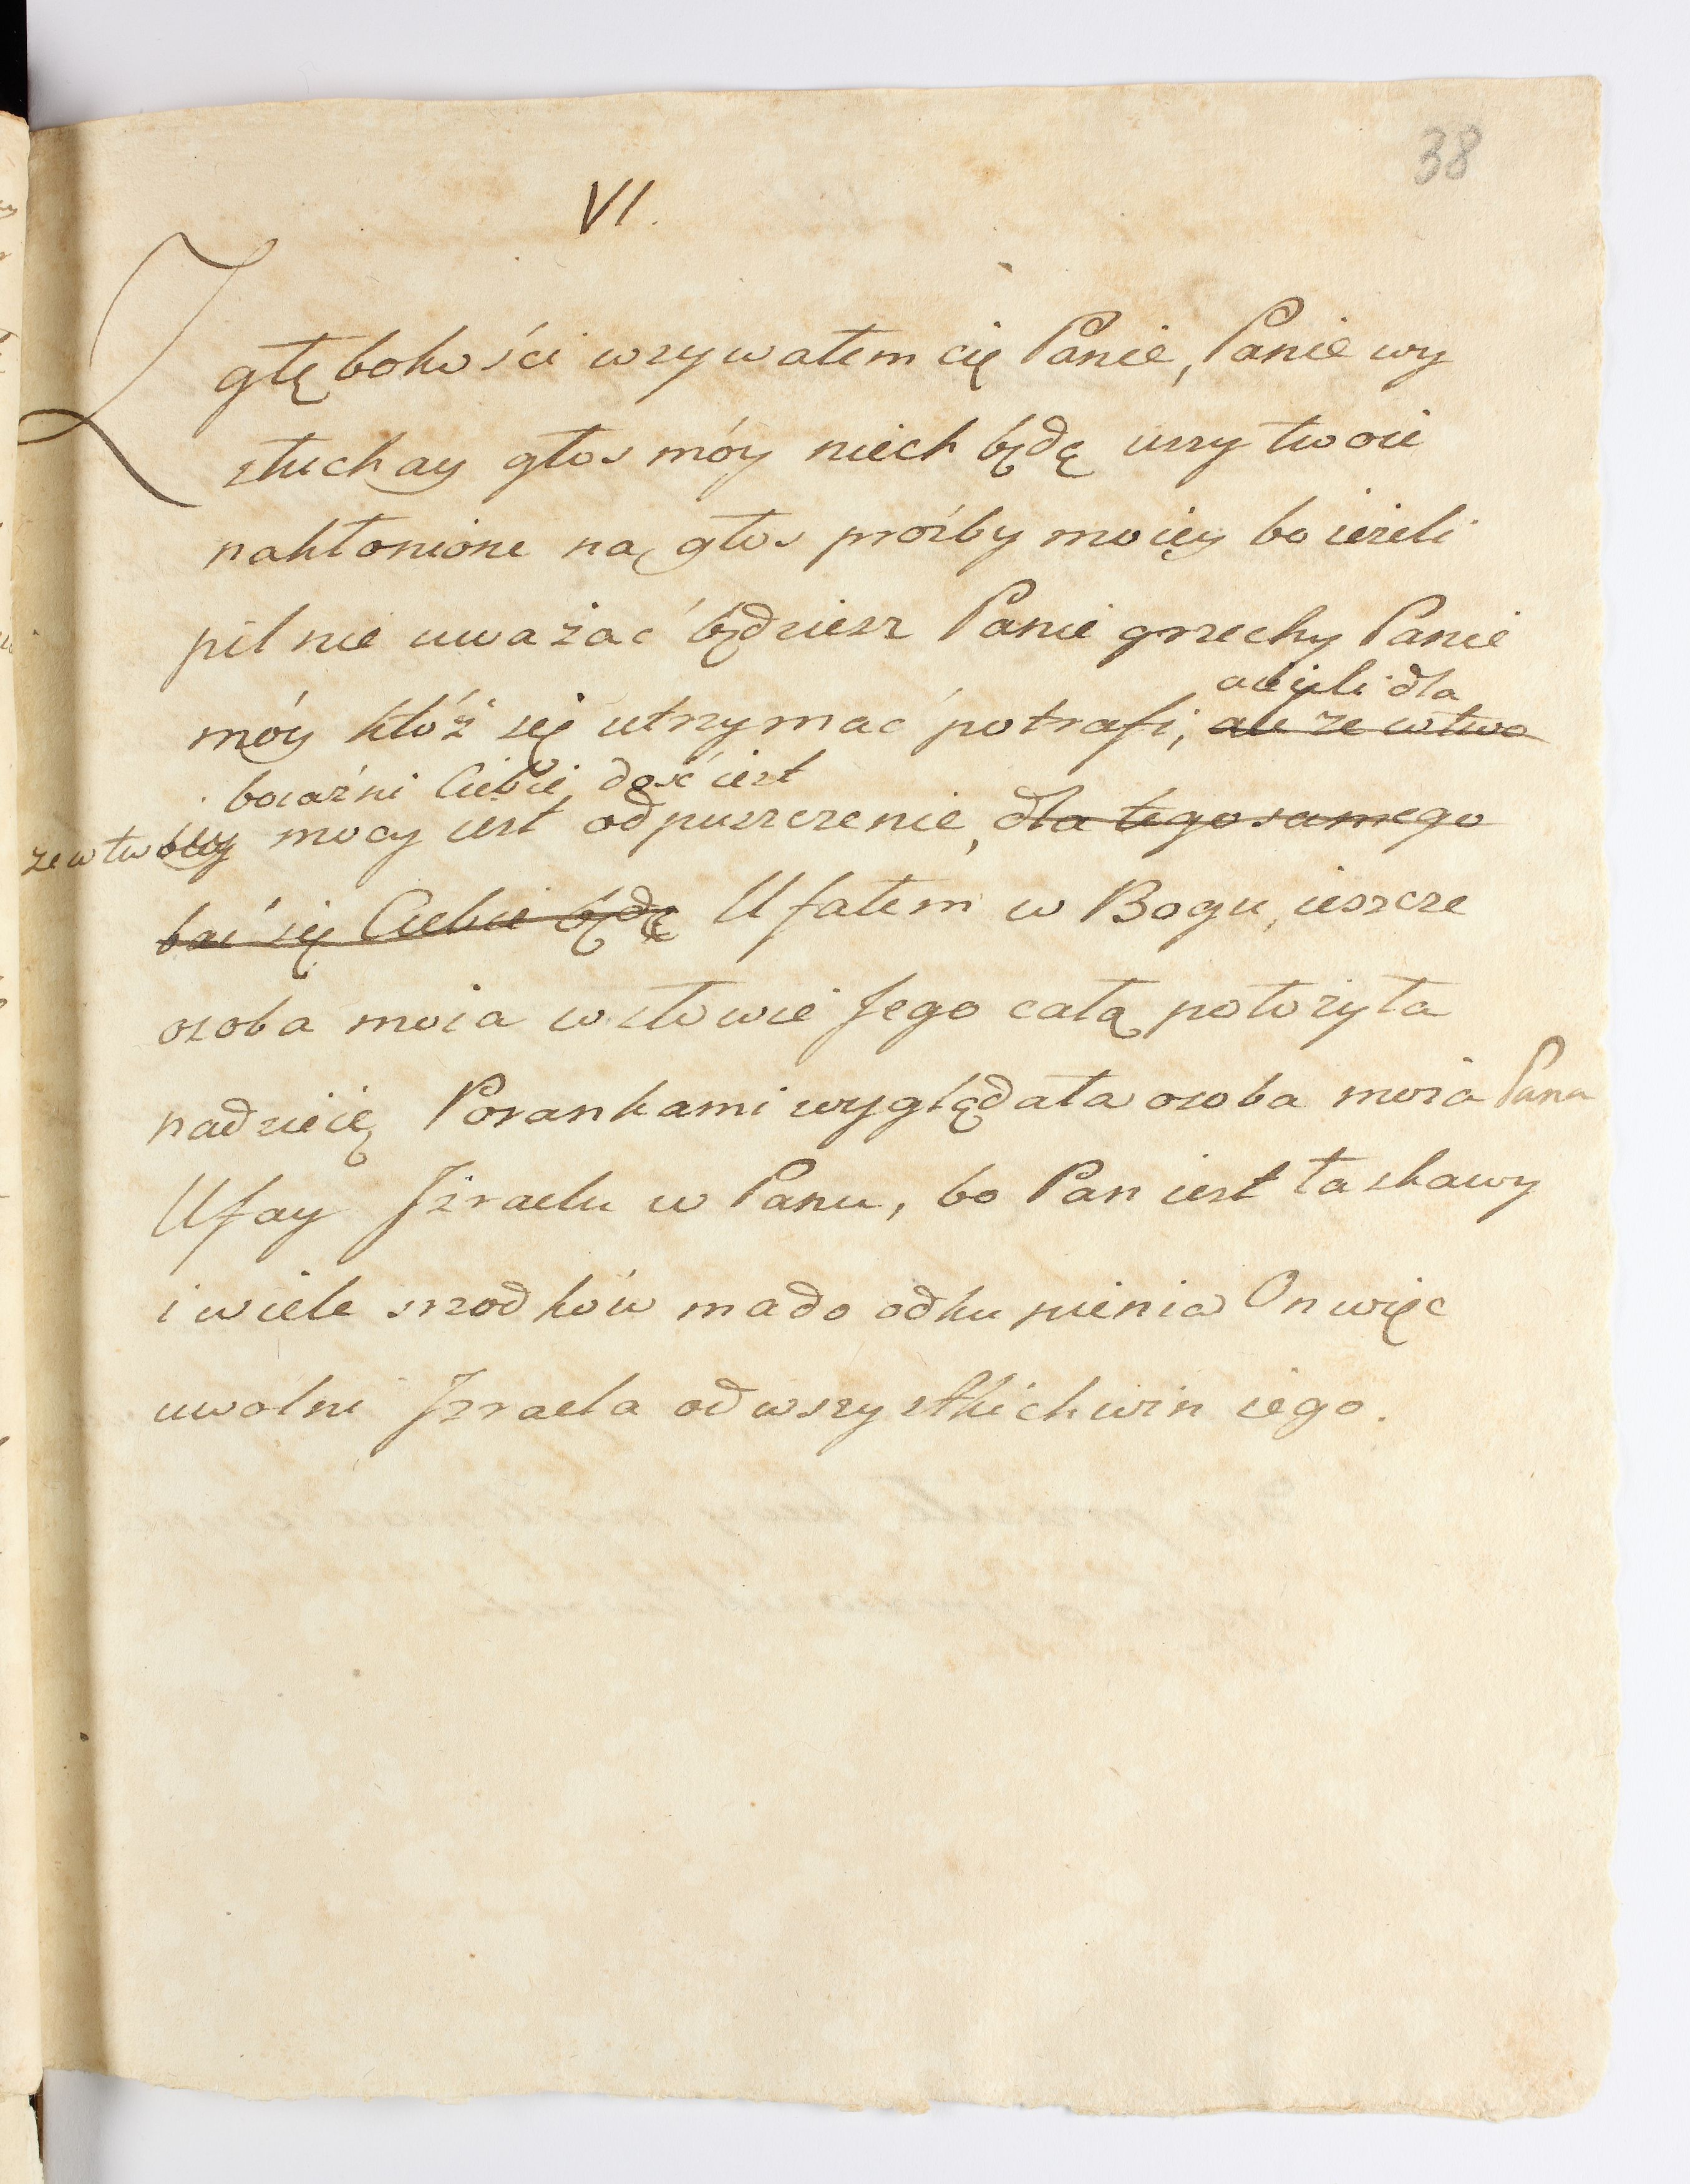 38
VI.
Z głębokości wzywałem cię Panie, Panie wy
słuchay głos móy niech będę uszy twoie
nakłonione na głos prośby moięy bo ieżeli
pilnie uważać będziesz Panie grzechy Panie
ale ieżeli dla
móy któż się utrzymać potrafi, ale ze w two
boiaźni Ciebie, dość iest
ze w twoiey mocy iest odpuszczenie, dla tego samego
bać się Ciebie będę Ufałem w Bogu, ieszcze
osoba moia w słowie Jego całą położyła
nadzieię Porankami wyglądała osoba moia Pana
Ufay Izraelu w Panu, bo Pan iest łaskawy
i wiele srzodków ma do odkupienia On więc
uwolni Izraela od wszystkich win iego.